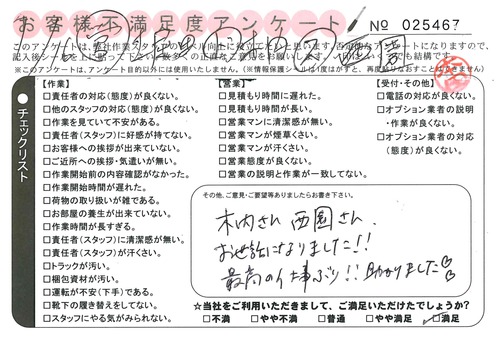 お客様不満足度アンケート
№ 025467
このアンケートは、弊社作業スタッフのスキル向上に役立てたいと思います。
記入後シールを上に貼って下さい。
※このアンケートは、アンケート目的以外には使用いたしません。(※情報保護シールは1度はがすと、再度貼りなおすことはできません)
チェックリスト
【作業】
□責任者の対応(態度)が良くない。
□他のスタッフの対応(態度)が良くない。
□作業を見ていて不安がある。
□責任者(スタッフ)に好感が持てない。
□お客様への挨拶が出来ていない。
□ご近所への挨拶・気遣いが無い。
□作業開始前の内容確認がなかった。
□作業開始時間が遅れた。
□荷物の取り扱いが雑である。
□お部屋の養生が出来ていない。
□作業時間が長すぎる。
□責任者(スタッフ)に清潔感が無い。
□責任者(スタッフ)が汗くさい。
□トラックが汚い。
□梱包資材が汚い。
□運転が不安(下手)である。
□靴下の履き替えをしてない。
□スタッフにやる気がみられない。
【営業】
□見積もり時間に遅れた。
□見積もり時間が長い。
□営業マンに清潔感が無い。
□営業マンが煙草くさい。
□営業マンが汗くさい。
□営業態度が良くない。
□営業の説明と作業が一致してない。
【受付・その他】
□電話の対応が良くない。
□オプション業者の説明
・作業が良くない。
□オプション業者の対応
(態度)が良くない。
その他、ご意見・ご要望等ありましたらお書き下さい。
木内さん 西園さん、
お世話になりました!!
最高の仕事ぶり!! 助かりました
☆当社をご利用いただきまして、ご満足いただけたでしょうか?
□不満 □やや不満 □普通 □やや満足 ☑満足